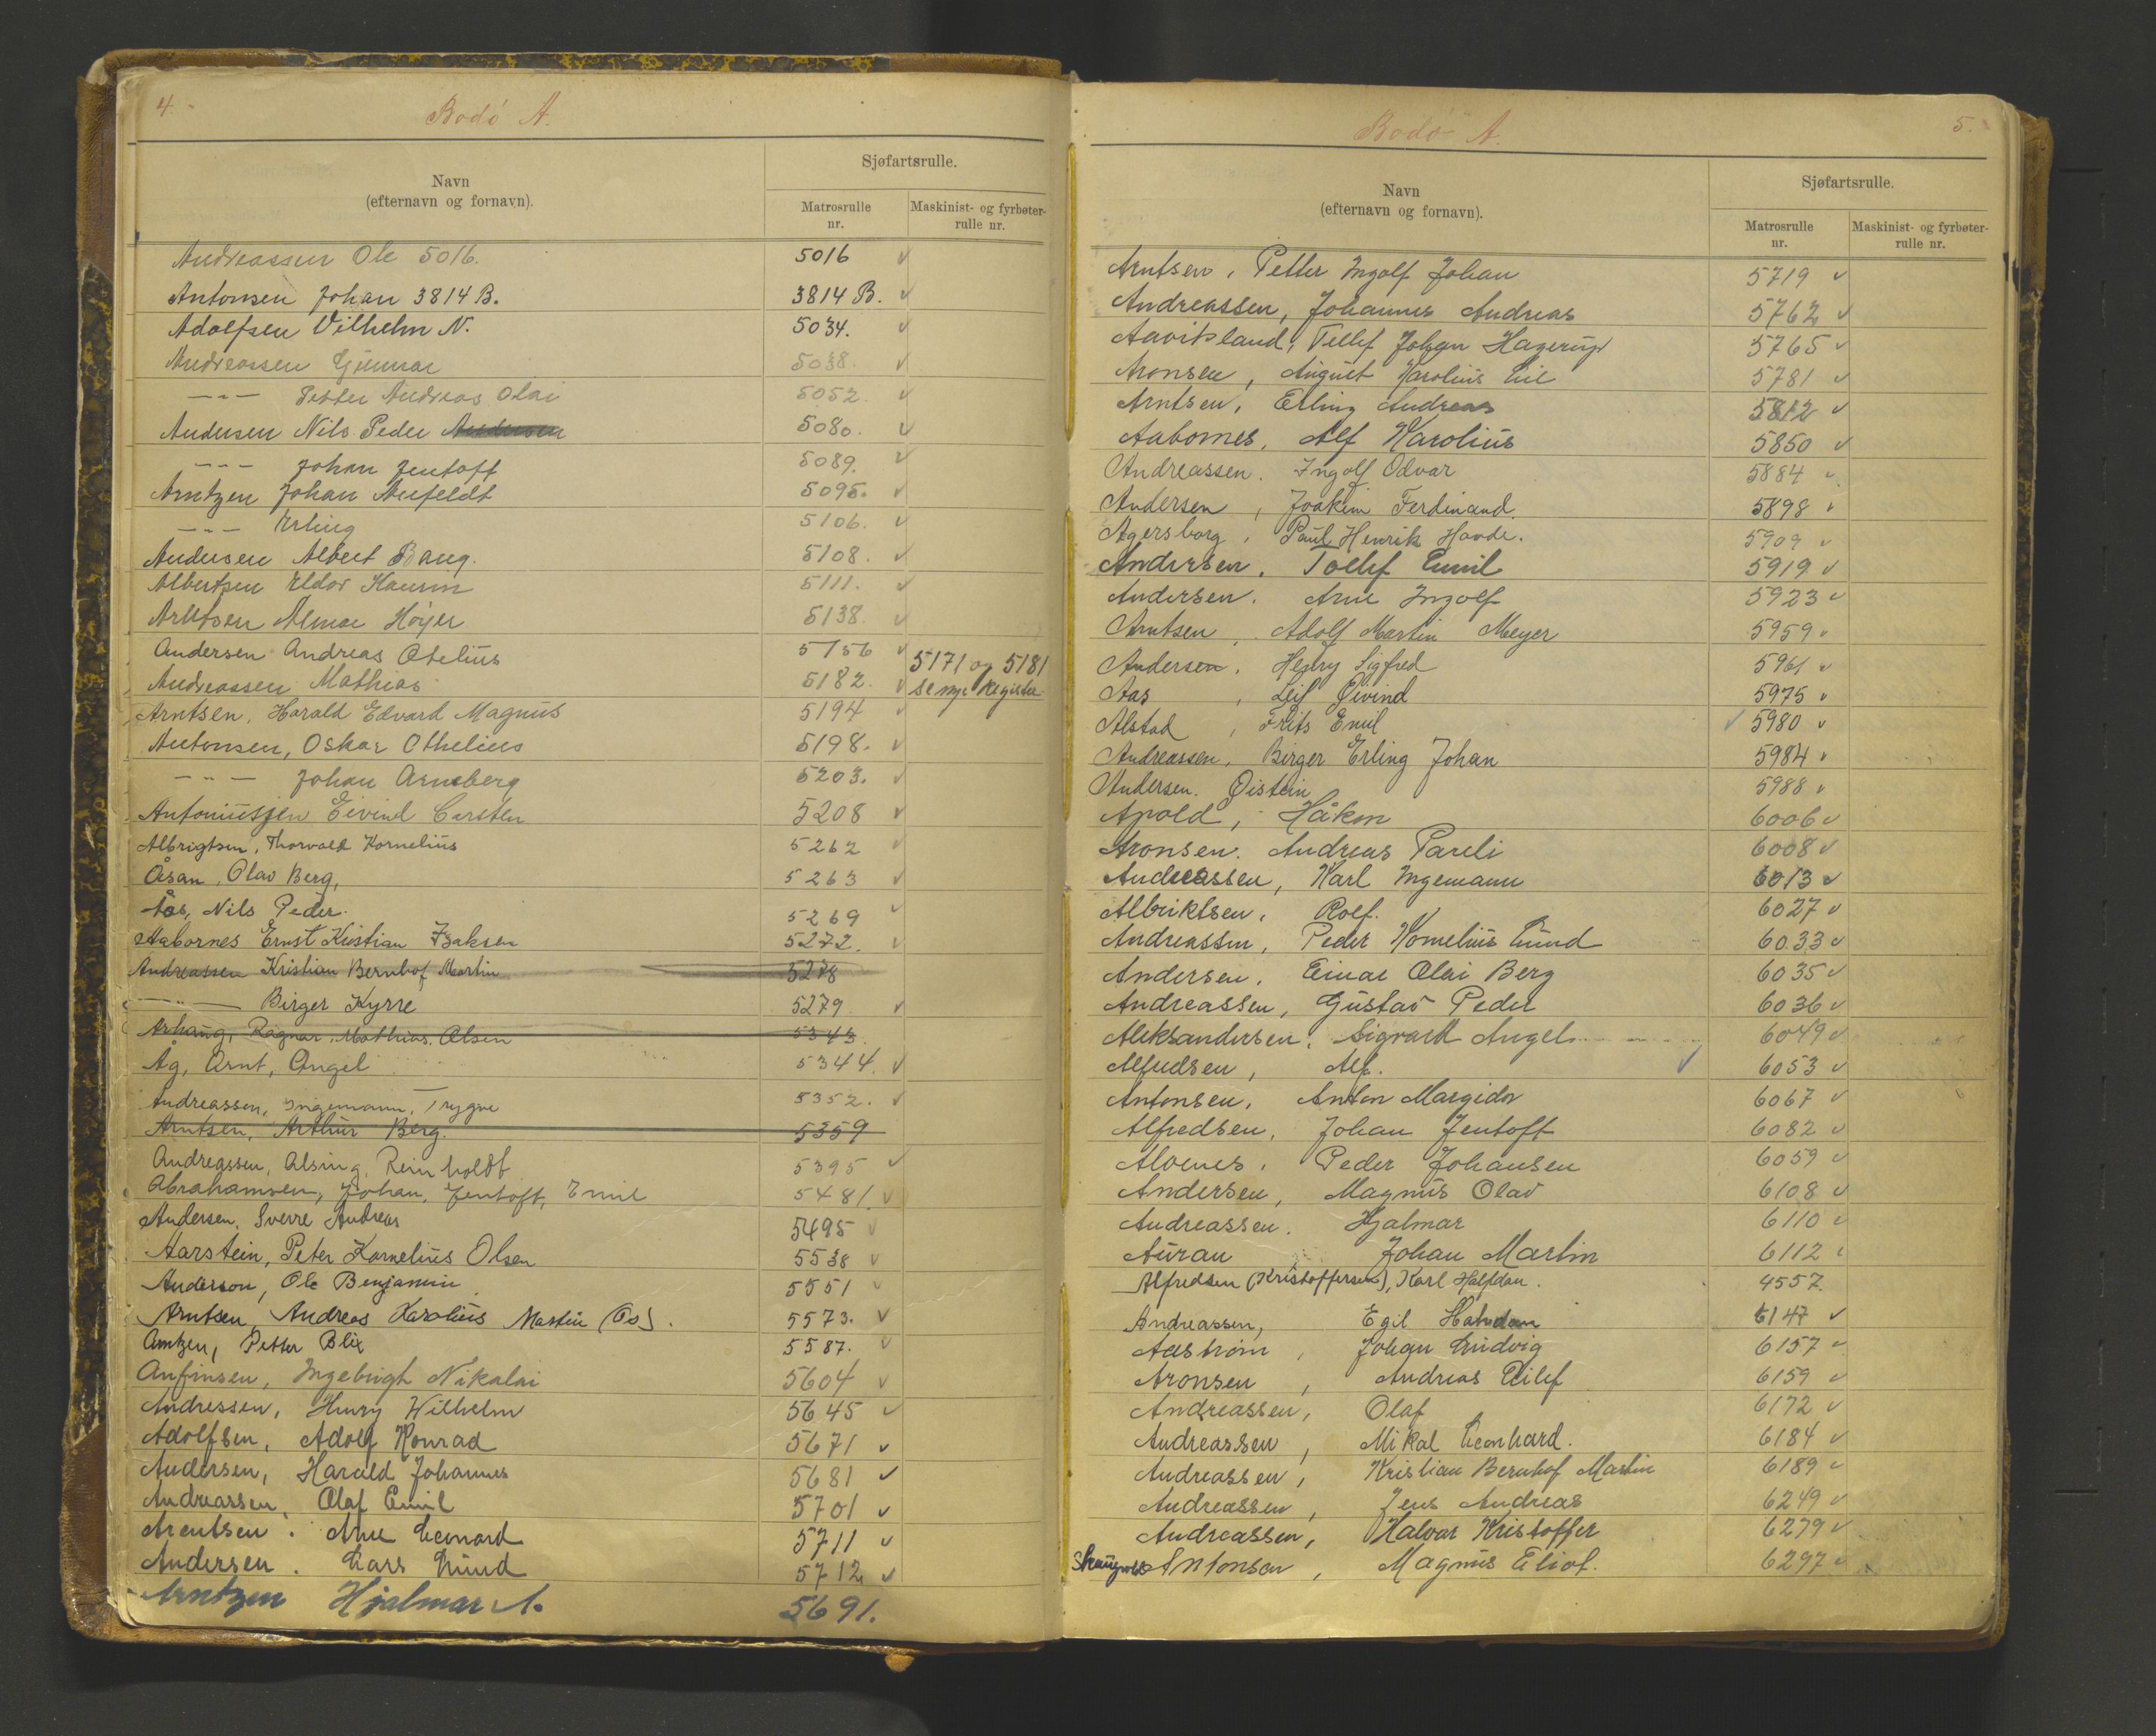 4.
Bodö A.
Navn
(efternavn og fornavn).
Sjøfartsrulle.
Matrosrulle
nr.
Maskinist- og fyrbøter-
rulle nr.
Andreassen Ole 5016. 5016 ✓
Antonsen Johan 3814 B. 3814 B. ✓
Adolfsen Vilhelm N. 5034. ✓
Andreassen Gunnar 5038. ✓
—"— Petter Andreas Olai 5052. ✓
Andersen Nils Peder Andersen 5080. ✓
—"— Johan Jentoft 5089. ✓
Arntzen Johan Anfeldt 5095. ✓
—"— Erling 5106. ✓
Andersen Albert Bang. 5108. ✓
Albertsen Eldor Kaurin 5111. ✓
Arntsen Almar Høyer 5138. ✓
Andersen Andreas Otelius 5156 ✓ 5171 og 5181
Andreassen Mathias 5182. ✓ se nye Register
Arntsen, Harald Edvard Magnus 5194 ✓
Antonsen, Oskar Othelius 5198. ✓
—"— Johan Arneberg 5203. ✓
Antoniussen Eivind Carsten 5208 ✓
Albrigtsen, Thorvald Kornelius 5262 ✓
Åsan, Olav Berg, 5263 ✓
Ås, Nils Peder. 5269 ✓
Aabornes Ernst Kristian Isaksen 5272. ✓
Andreassen Kristian Bernhof Martin 5278
—"— Birger Kyrre 5279 ✓
Arhaug, Ragnar, Mathias, Olsen 5343.
Åg, Arnt, Angel 5344. ✓
Andreassen, Ingemann, Trygve 5352. ✓
Arntsen, Arthur Berg. 5359
Andreassen, Alsing, Reinholdt 5395 ✓
Abrahamsen, Johan, Jentoft, Emil 5481. ✓
Andersen, Sverre Andreas 5495 ✓
Aarstein, Peter Kornelius Olsen 5538 ✓
Anderson, Ole Benjamin 5551 ✓
Arntsen, Andreas Karolius Martin (Os). 5573. ✓
Arntzen, Petter Blix 5587. ✓
Anfinsen, Ingebrigt Nikolai 5604 ✓
Andressen, Henry Wilhelm 5645 ✓
Adolfsen, Adolf Konrad 5671 ✓
Andersen, Harald Johannes 5681 ✓
Andreassen, Olaf Emil 5701 ✓
Arentsen. Arne Leonard 5711 ✓
Andersen. Lars Lund 5712 ✓
Arntzen Hjalmar A. 5691.
Bodö A.
5.
Navn
(efternavn og fornavn).
Sjøfartsrulle.
Matrosrulle
nr.
Maskinist- og fyrbøter-
rulle nr.
Arntsen, Petter Ingolf Johan 5719 ✓
Andreassen, Johannes Andreas 5762 ✓
Aavitsland, Tellef Johan Hagerup 5765 ✓
Aronsen, August Karolius Eie 5781 ✓
Arntsen, Erling Andreas 5812 ✓
Aabornes, Alf Karolius 5850 ✓
Andreassen. Ingolf Odvar 5884 ✓
Andersen, Joakim Ferdinand. 5898 ✓
Agersborg, Paul Henrik Havde. 5909 ✓
Andersen. Tollef Emil 5919 ✓
Andersen. Arne Ingolf 5923 ✓
Arntsen, Adolf Martin Meyer 5959 ✓
Andersen, Henry Sigfred 5961 ✓
Aas, Leif Øivind 5975 ✓
Alstad, Frits Emil ✓ 5980 ✓
Andreassen, Birger Erling Johan 5984 ✓
Andersen. Øistein 5988 ✓
Apold, Håkon 6006 ✓
Aronsen. Andreas Pareli 6008 ✓
Andreassen, Karl Ingemann 6013 ✓
Albriktsen, Rolf. 6027 ✓
Andreassen, Peder Kornelius Lund 6033 ✓
Andersen. Einar Olai Berg 6035 ✓
Andreassen, Gustav Peder 6036 ✓
Aleksandersen, Sigvard Angel 6049 ✓
Alfredsen, Alf. ✓ 6053 ✓
Antonsen. Anton Margido 6067 ✓
Alfredsen. Johan Jentoft 6082 ✓
Alvenes. Peder Johansen 6059 ✓
Andersen, Magnus Olav 6108 ✓
Andreassen. Hjalmar 6110 ✓
Auran Johan Martin 6112 ✓
Alfredsen (Kristoffersen), Karl Halfdan. 4557.
Andreassen, Egil 6147 ✓
Aastrøm, Johan Ludvig 6157 ✓
Aronsen, Andreas Eilif 6159 ✓
Andreassen, Olaf 6172 ✓
Andreassen, Mikal Leonhard. 6184 ✓
Andreassen, Kristian Bernhof Martin 6189 ✓
Andreassen, Jens Andreas 6249 ✓
Andreassen, Halvar Kristoffer 6279 ✓
Antonsen, Magnus Eliot. 6297 ✓